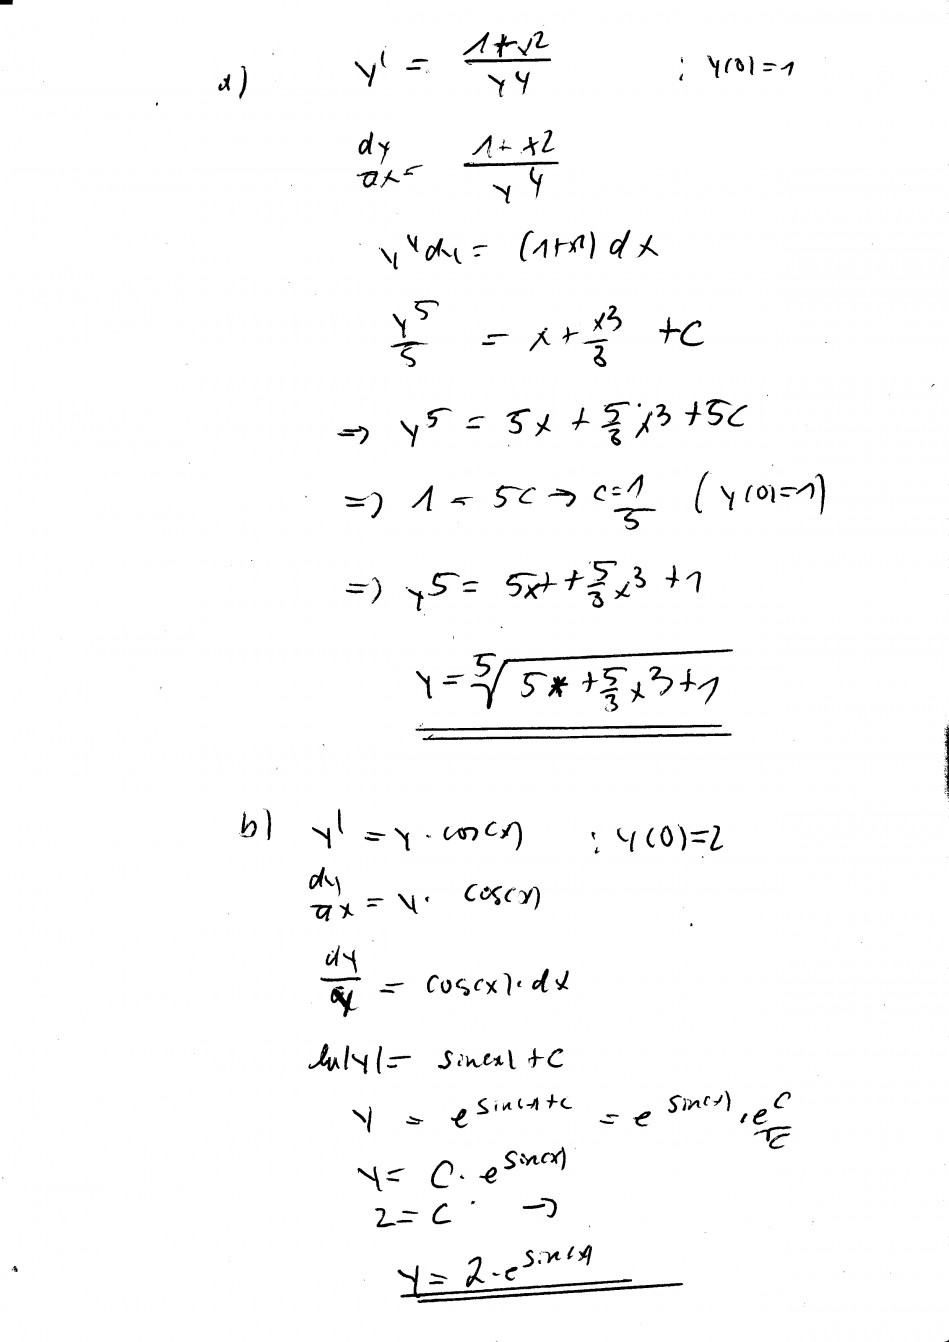 a) y' = (1+x²)/y⁴ ; y(0)=1
dy/dx = (1+x²)/y⁴
y⁴dy = (1+x²) dx
y⁵/5 = x + x³/3 + c
=> y⁵ = 5x + 5/3 x³ + 5c
=> 1 = 5c → c=1/5 (y(0)=1)
=> y⁵ = 5x + 5/3 x³ + 1
y = ⁵√(5x + 5/3 x³ + 1)
b) y' = y · cos(x) ; y(0)=2
dy/dx = y · cos(x)
dy/y = cos(x) · dx
ln|y| = sin(x) + C
y = e^(sin(x)+c) = e^(sin(x)) · e^c
y = C · e^(sin(x))
2 = C →
y = 2 · e^(sin(x))